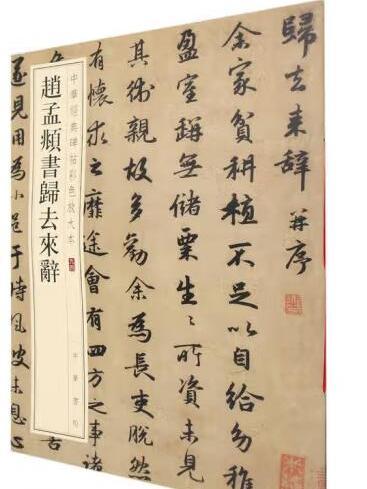 歸去来辞并序
余家貧耕植不足以自給幼稚
盈室缾無儲粟生〻所資未見
其術親故多勸余為長吏脫然
有懷求之靡途會有四方之事諸
中華經典碑帖彩色放大本
中華書局
趙孟頫書歸去來辭
遂見用為小邑于時風波未息心